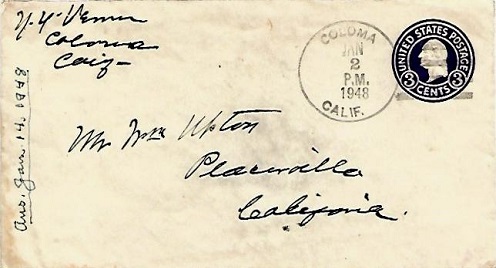 Coloma
Calif
COLOMA
JAN
2
P.M.
1948
CALIF.
UNITED STATES POSTAGE
3 CENTS 3
Ans. Jan. 14, 1948
Mr Wm Upton
Placerville
California.